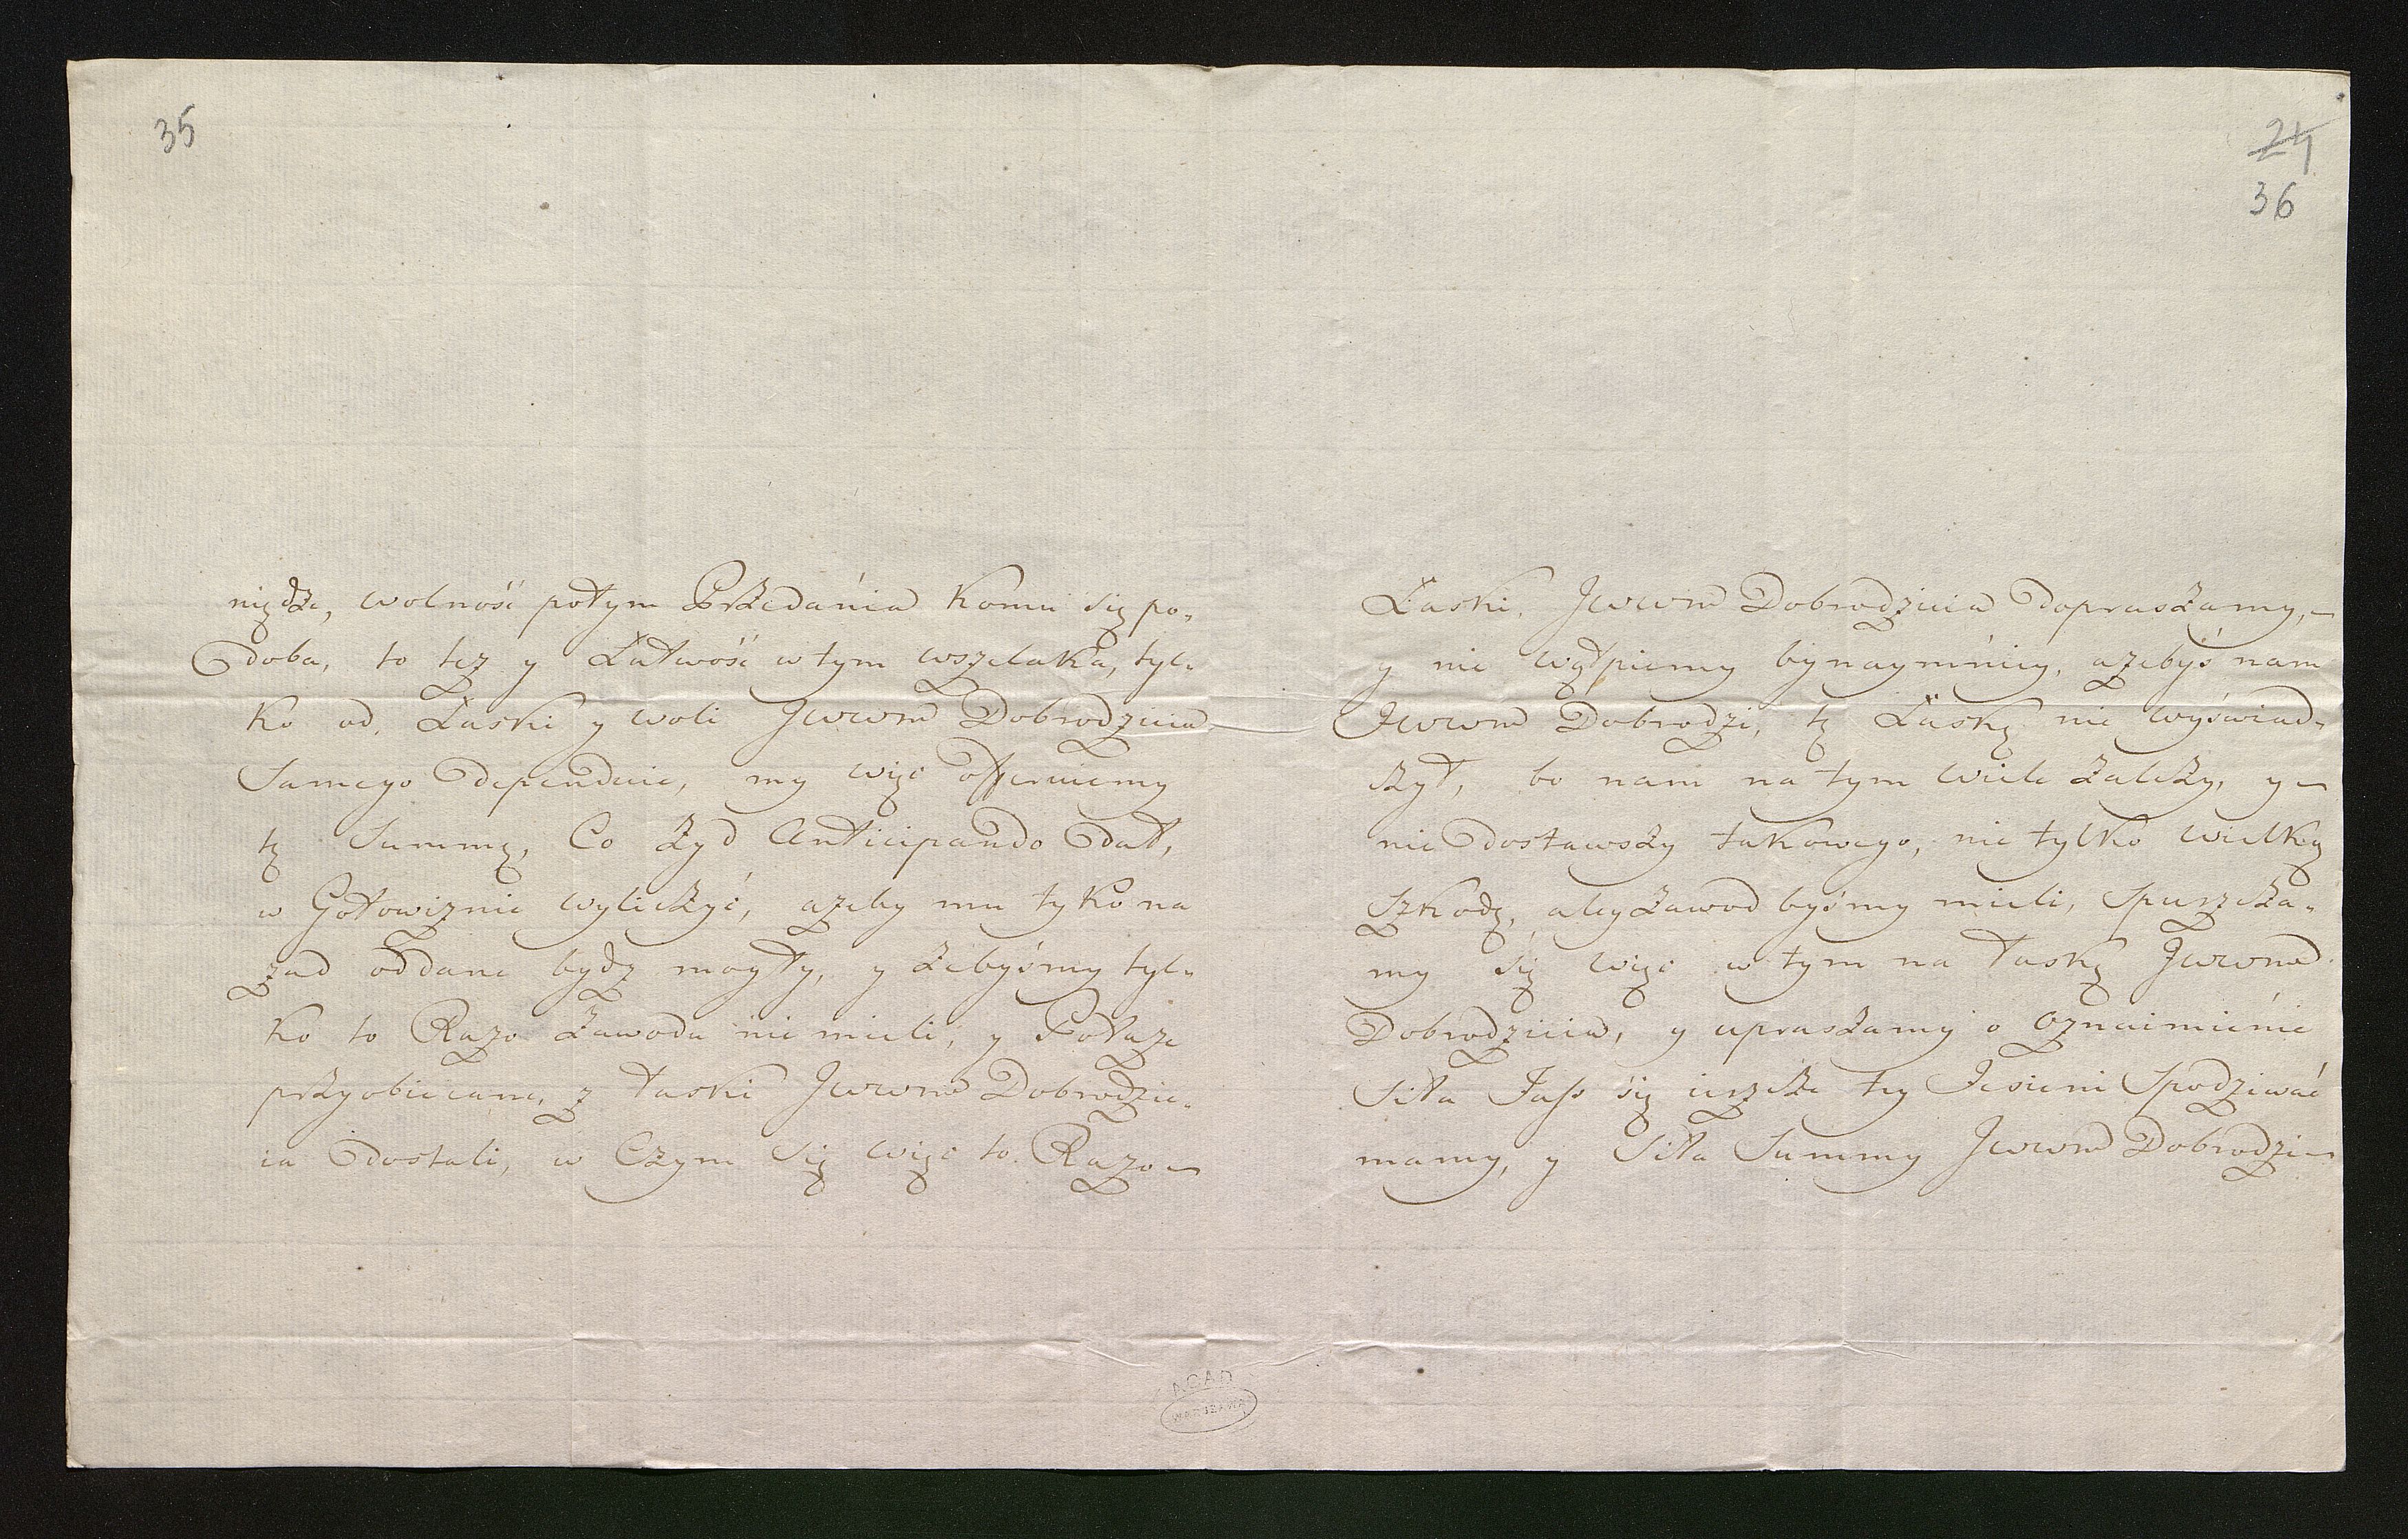 35
niędze, wolność potym Przedánia komu się po-
doba, to tez y Łatwość w tym wszelaka, tyl-
ko od Łaski y woli Jwwm Dobrodzieia
Samego dependuie, my więc offeruiemy
tę Summę, Co Żyd Anticipando dał,
w Gotowiznie wyliczyć, azeby mu tyko na
zad oddane bydz mogły, y żebyśmy tyl-
ko to Razo Zawodu nie mieli, y Potaze
przyobiecane z łaski Jwwm Dobrodzie-
ia dostali, w Czym Się więc to Razo
24
36
Łaski Jwwm Dobrodzieia dopraszamy,
y nie wątpiemy bynaymniey, azebyś nam
Jwwm Dobrodzi, tę Łaskę nie wyświad-
czył, bo nam na tym wiele zależy, y
nie dostawszy takowego, nie tylko wielką
Szkodę, aley Zawod byśmy mieli, Spuszcza-
my się więc w tym na łaskę Jwwmd
Dobrodzieia, y upraszamy o Oznaimienie
Siła Faſs się ieszcze tey Jesieni Spodziwać
mamy, y Siła Summy Jwwm Dobrodzi
AGAD
WARSZAWA